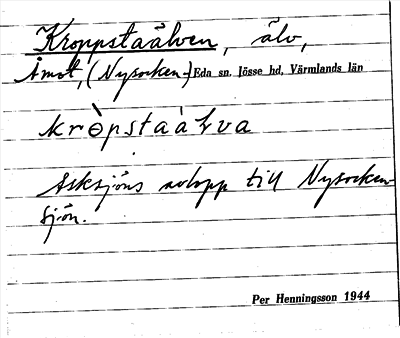 Kroppstaälven, älv,
Åmot, (Nysocken-) Eda sn, Jösse hd, Värmlands län
krɵ̀pstaàɫva
Asksjöns avlopp till Nysocken-
sjön.
Per Henningsson 1944